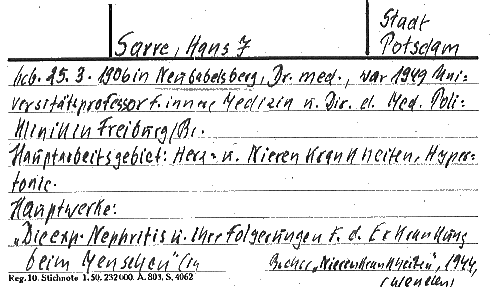 Sarre, Hans J
Stadt
Potsdam
Geb. 25.3.1906 in Neubabelsberg, Dr. med., war 1949 Uni-
versitätsprofessor f. innere Medizin u. Dir. d. Med. Poli-
klinik in Freiburg/Br.
Hauptarbeitsgebiet: Herz- u. Nierenkrankheiten, Hyper-
tonie.
Hauptwerke:
„Die exp. Nephritis u. ihre Folgerungen f. d. Erkrankung
beim Menschen" (in
Bücher „Nierenkrankheiten", 1944,
Reg. 10. Stichnote 1. 50. 232000. A. 803, S. 4062